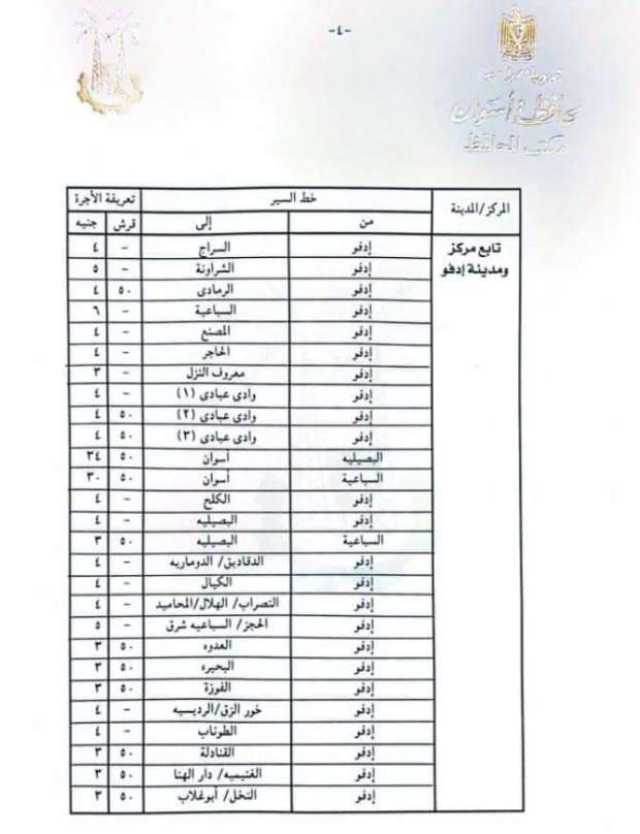 -٤-
محافظة أسوان
مكتب المحافظ
المركز/المدينة خط السير تعريفة الأجرة
من إلى قرش جنيه
تابع مركز ومدينة إدفو
إدفو السراج - ٤
إدفو الشراونة - ٥
إدفو الرمادى ٥٠ ٤
إدفو السباعية - ٦
إدفو المصنع - ٤
إدفو الحاجر - ٤
إدفو معروف النزل - ٣
إدفو وادى عبادى (١) - ٤
إدفو وادى عبادى (٢) ٥٠ ٤
إدفو وادى عبادى (٣) ٥٠ ٤
البصيليه أسوان ٥٠ ٣٤
السباعية أسوان ٥٠ ٣٠
إدفو الكلح - ٤
إدفو البصيليه - ٤
السباعية البصيليه ٥٠ ٣
إدفو الدقاديق/ الدوماريه - ٤
إدفو الكيال - ٤
إدفو النصراب/ الهلال/المحاميد - ٤
إدفو الحجز/ السباعيه شرق - ٥
إدفو العدوه ٥٠ ٣
إدفو البحيره ٥٠ ٣
إدفو الفوزة ٥٠ ٣
إدفو خور الزق/الرديسيه - ٤
إدفو الطوناب - ٤
إدفو القنادلة ٥٠ ٣
إدفو الغنيميه/ دار الهنا ٥٠ ٣
إدفو النخل/ أبوغلاب ٥٠ ٣